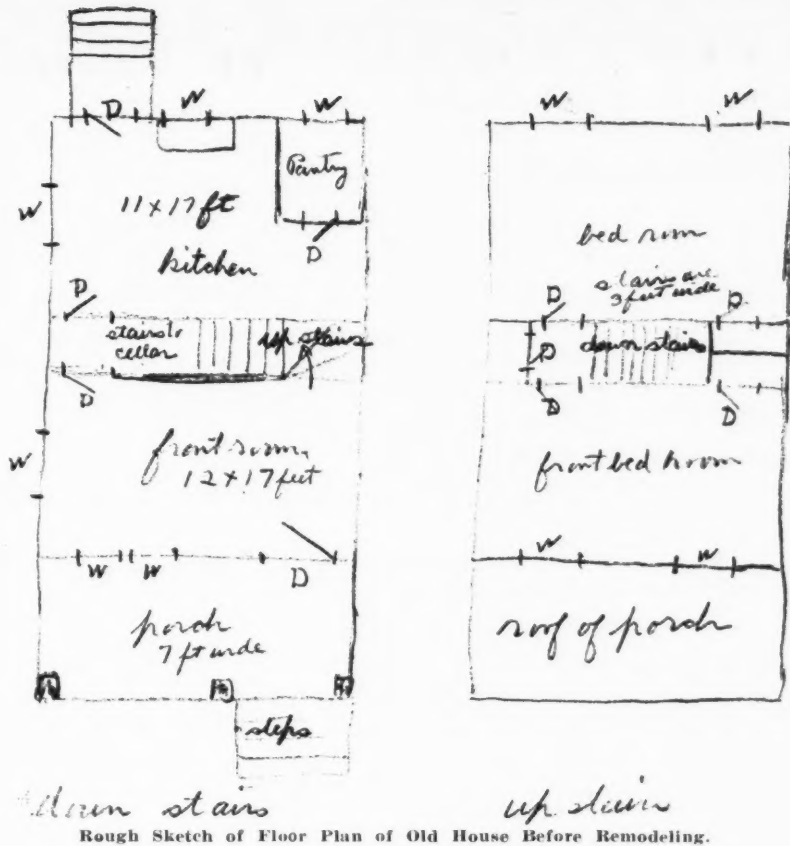 D
W
W
Pantry
W
11 x 17 ft
kitchen
D
D
stairs to
cellar
up stairs
D
W
front room
12 x 17 feet
W
W
D
porch
7 ft wide
steps
down stairs
W
W
bed room
stairs are
3 feet wide
D
D
D
down stairs
D
D
front bed room
W
W
roof of porch
up stairs
Rough Sketch of Floor Plan of Old House Before Remodeling.